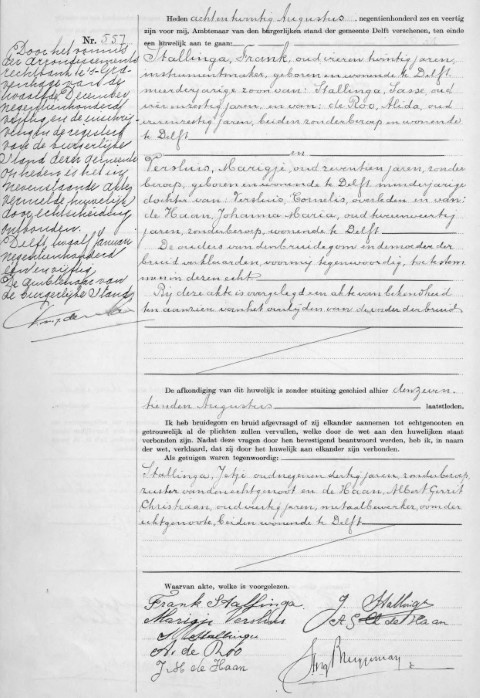 Nr. 557
Door het vonnis
der arrondissements
rechtbank te 's-Gra-
venhage van de
twaalfde December
negentienhonderd
vijftig, en de inschrij-
ving in de registers
van de burgerlijke
Stand dezer gemeente
op heden is het in
nevenstaande akte
vermelde huwelijk
door echtscheiding
ontbonden.
Delft, twaalf Januari
negentienhonderd
een en vijftig.
De Ambtenaar van
de burgerlijke Stand,
Heden achten twintig Augustus, negentienhonderd zes en veertig
zijn voor mij, Ambtenaar van den burgerlijken stand der gemeente Delft verschenen, ten einde
een huwelijk aan te gaan:
Stallinga, Frank, oud vier en twintig jaren,
instrumentmaker, geboren en wonende te Delft,
meerderjarige zoon van: Stallinga, Sasse, oud
vier en zestig jaren, en van: de Roo, Alida, oud
en zestig jaren, beiden zonder beroep en wonende
te Delft
en
Versluis, Marigje, oud zeventien jaren, zonder
beroep, geboren en wonende te Delft, minderjarige
dochter van: Versluis, Cornelis, overleden en van:
de Haan, Johanna Maria, oud twee en veertig
jaren, zonder beroep, wonende te Delft.
De ouders van den bruidegom en de moeder der
bruid verklaarden, voor mij tegenwoordig, toe te stem-
men in deren echt.
Bij deze akte is overgelegd een akte van bekendheid
ten aanzien van het overlijden van de vader der bruid
De afkondiging van dit huwelijk is zonder stuiting geschied alhier den zeven-
tienden Augustus laatstleden.
Ik heb bruidegom en bruid afgevraagd of zij elkander aannemen tot echtgenooten en
getrouwelijk al de plichten zullen vervullen, welke door de wet aan den huwelijken staat
verbonden zijn. Nadat deze vragen door hen bevestigend beantwoord werden, heb ik, in naam
der wet, verklaard, dat zij door het huwelijk aan elkander zijn verbonden.
Als getuigen waren tegenwoordig:
Stallinga, Jetje, oud negen en dertig jaren, zonder beroep,
zuster van den echtgenoot en de Haan, Albert Gerrit
Christiaan, oud veertig jaren, metaalbewerker, oom der
echtgenoote, beiden wonende te Delft
Waarvan akte, welke is voorgelezen.
Frank Stallinga
J. Stallinga
Marigje Versluis
A G C de Haan
S. Stallinga
A. de Roo
J. M. de Haan